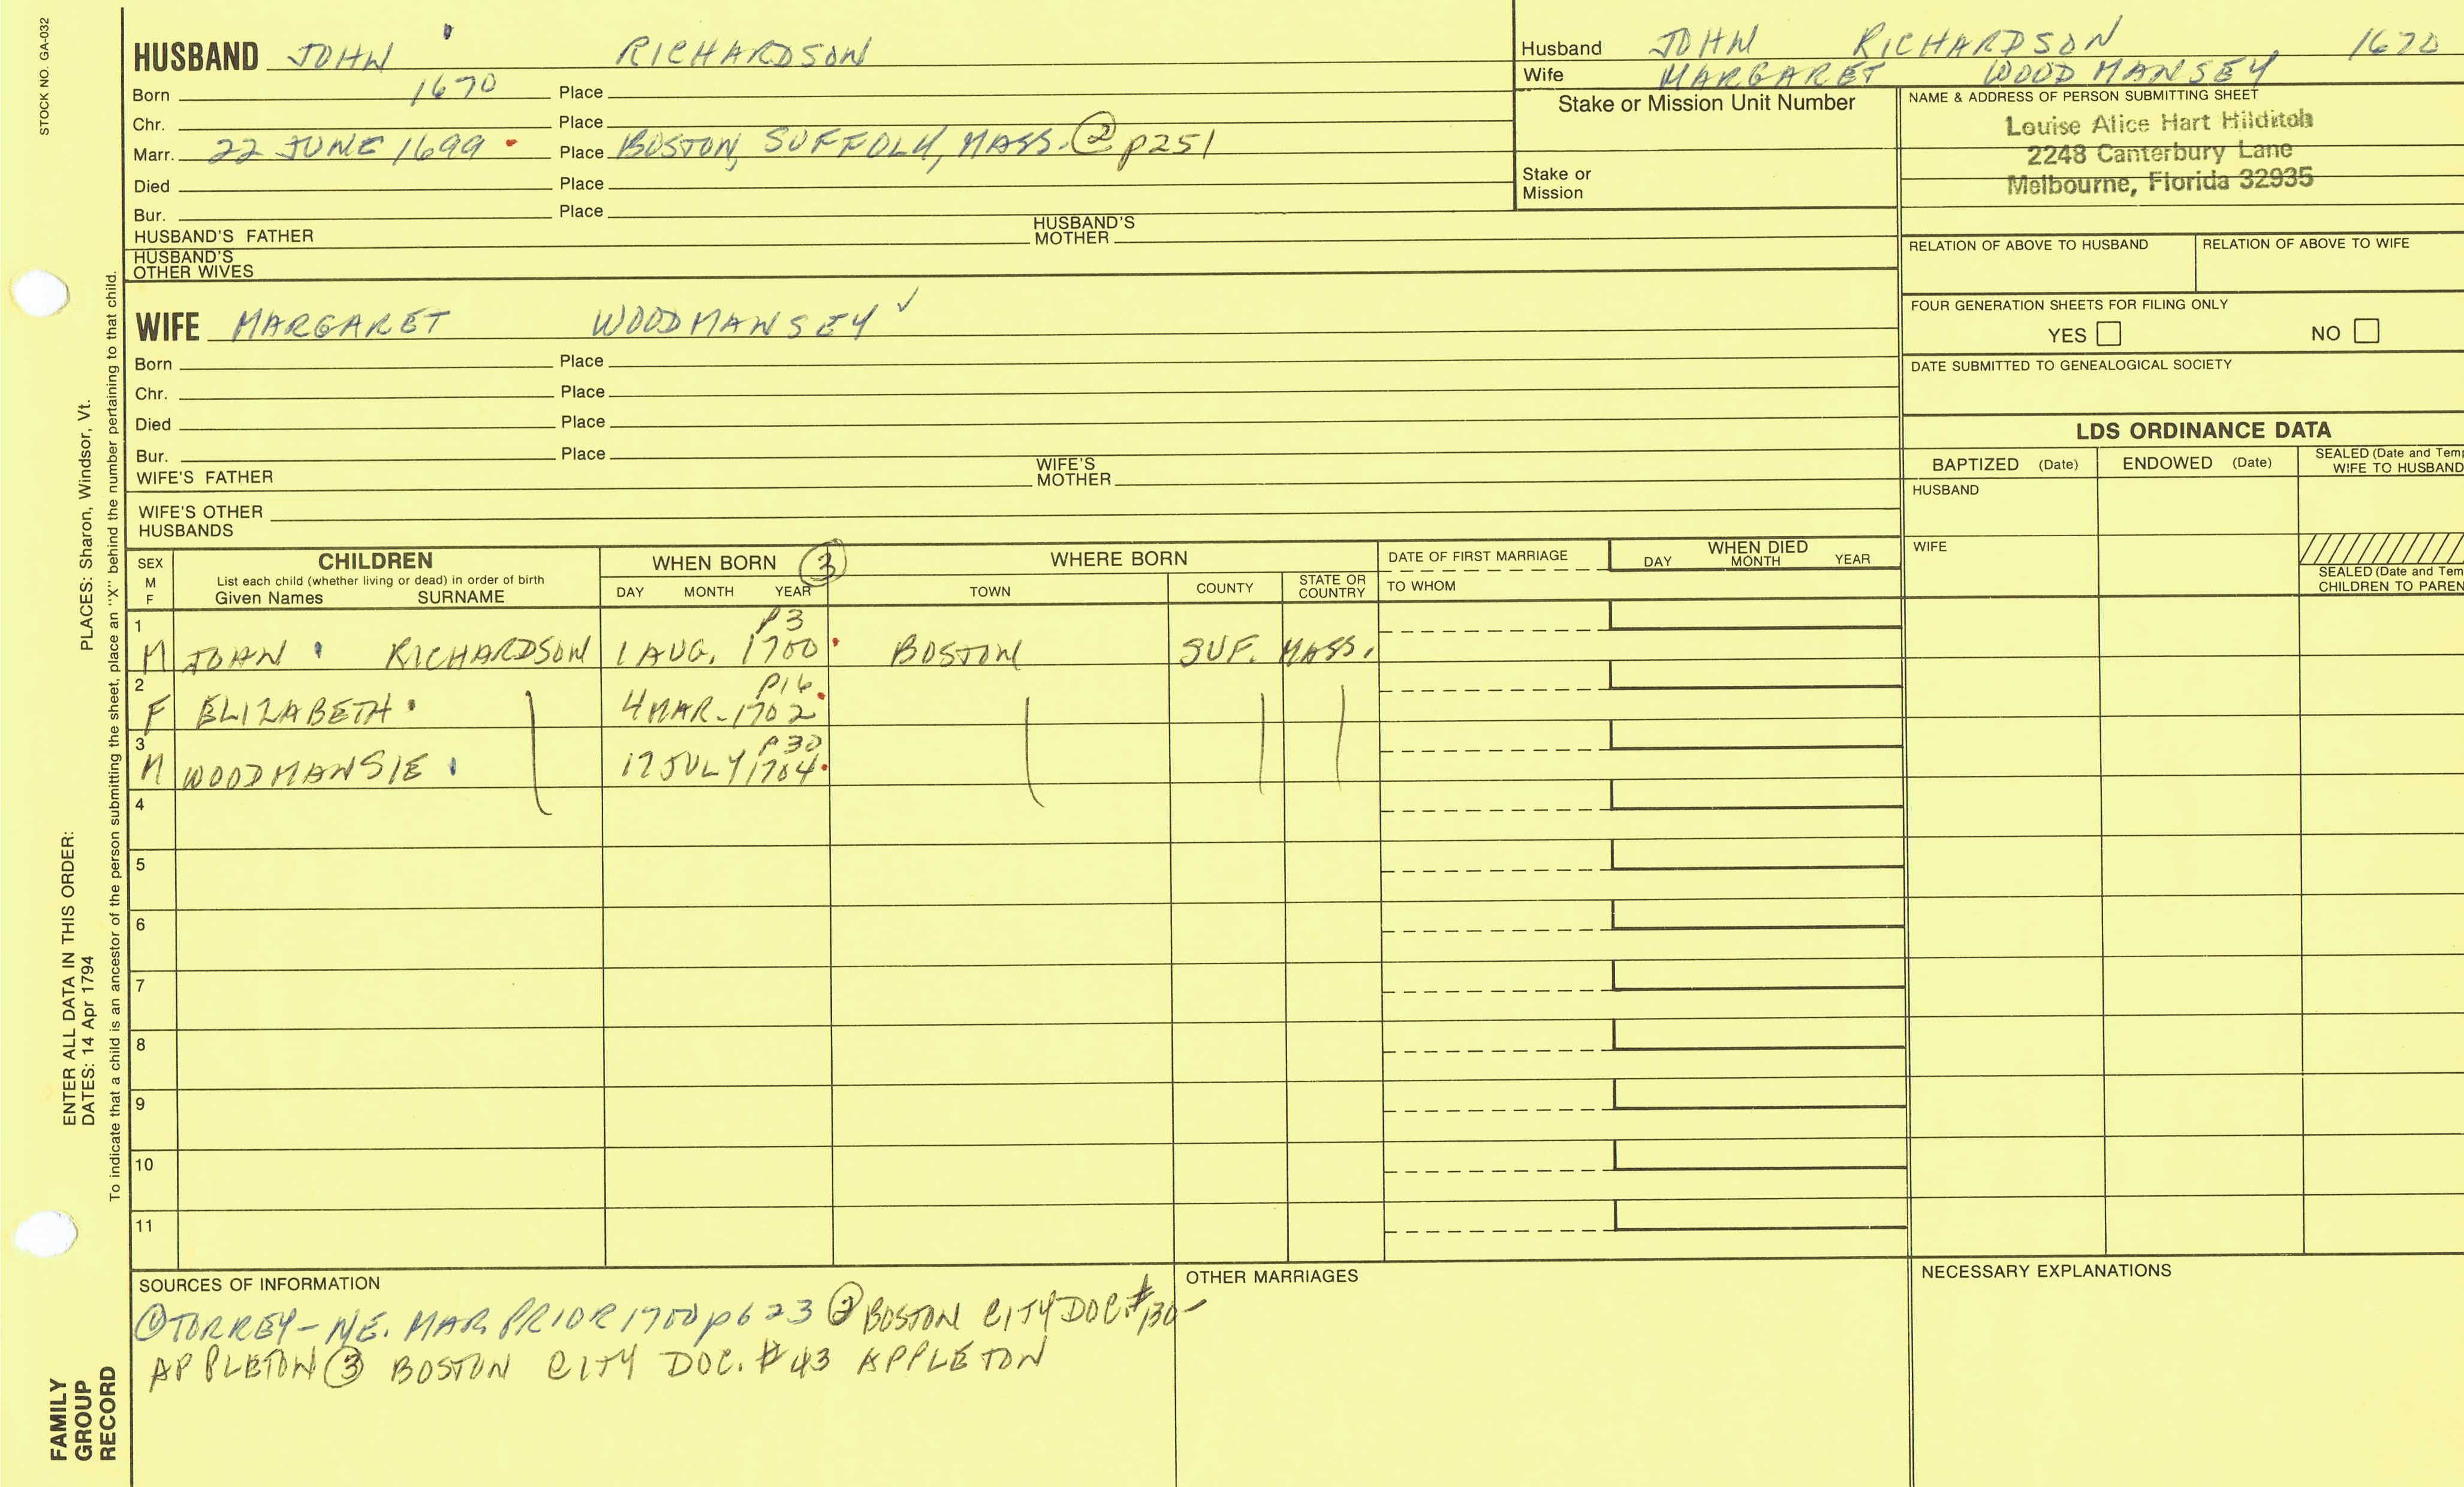 STOCK NO. GA-032
HUSBAND JOHN RICHARDSON
Born 1670 Place
Chr. Place
Marr. 22 JUNE 1699 Place BOSTON, SUFFOLK, MASS. ② p251
Died Place
Bur. Place
HUSBAND'S FATHER HUSBAND'S MOTHER
HUSBAND'S OTHER WIVES
Husband JOHN RICHARDSON 1670
Wife MARGARET WOODMANSEY
Stake or Mission Unit Number
Stake or Mission
NAME & ADDRESS OF PERSON SUBMITTING SHEET
Louise Alice Hart Hilditch
2248 Canterbury Lane
Melbourne, Florida 32935
RELATION OF ABOVE TO HUSBAND RELATION OF ABOVE TO WIFE
FOUR GENERATION SHEETS FOR FILING ONLY
YES NO
DATE SUBMITTED TO GENEALOGICAL SOCIETY
WIFE MARGARET WOODMANSEY ✓
Born Place
Chr. Place
Died Place
Bur. Place
WIFE'S FATHER WIFE'S MOTHER
WIFE'S OTHER HUSBANDS
LDS ORDINANCE DATA
BAPTIZED (Date) ENDOWED (Date) SEALED (Date and Temp
WIFE TO HUSBAND
HUSBAND
WIFE
SEALED (Date and Tem
CHILDREN TO PAREN
SEX M F
CHILDREN
List each child (whether living or dead) in order of birth
Given Names SURNAME
WHEN BORN ③
DAY MONTH YEAR
WHERE BORN
TOWN COUNTY STATE OR COUNTRY
DATE OF FIRST MARRIAGE
TO WHOM
WHEN DIED
DAY MONTH YEAR
1 P3
M JOHN RICHARDSON 1 AUG. 1700 BOSTON SUF. MASS.
2 P16
F ELIZABETH 4 MAR. 1702
3 P30
M WOODMANSIE 17 JULY 1704
4
5
6
7
8
9
10
11
SOURCES OF INFORMATION
① TORREY - N.E. MAR. PRIOR 1700 p623 ② BOSTON CITY DOC. #130 -
APPLETON ③ BOSTON CITY DOC. #43 APPLETON
OTHER MARRIAGES
NECESSARY EXPLANATIONS
ENTER ALL DATA IN THIS ORDER:
DATES: 14 Apr 1794 PLACES: Sharon, Windsor, Vt.
To indicate that a child is an ancestor of the person submitting the sheet, place an "X" behind the number pertaining to that child.
FAMILY
GROUP
RECORD